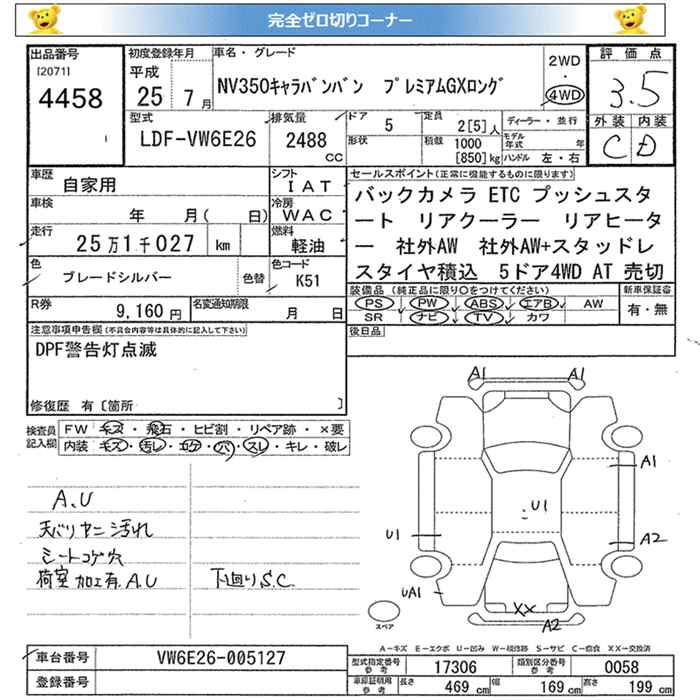 完全ゼロ切りコーナー
出品番号
[2071]
4458
初度登録年月
平成
25年 7月
車名・グレード
NV350キャラバンバン プレミアムGXロング
2WD
・
4WD
評価点
3.5
型式
LDF-VW6E26
排気量
2488
CC
ドア
5
形状
定員
2[5]人
積載 1000
[850]kg
ディーラー・並行
モデル年式 年
ハンドル 左・右
外装 内装
C D
車歴
自家用
シフト
IAT
車検
年 月( 日)
冷房
WAC
走行
25万1千027 km
燃料
軽油
色
ブレードシルバー
色替
色コード
K51
R券
9,160円
名変通知期限
月 日
セールスポイント(正常に機能するものに限ります)
バックカメラ ETC プッシュスタ
ート リアクーラー リアヒータ
ー 社外AW 社外AW+スタッドレ
スタイヤ積込 5ドア4WD AT 売切
装備品(純正品に限り○をつけてください)
PS PW ABS エアB AW
SR ナビ TV カワ
新車保証書
有・無
後日品
注意事項申告欄(不具合内容等は具体的に記入して下さい)
DPF警告灯点滅
修復歴 有[箇所 ]
検査員
記入欄
FW キズ・飛石・ヒビ割・リペア跡・×要
内装 キズ・汚レ・コゲ・穴・スレ・キレ・破レ
A.U
天バリヤニ汚れ
シートコゲ穴
荷室加工有.A.U
下廻りS.C
A1 A1
A1
U1
U1
A2
UA1
XX
A2
スペア
A-キズ E-エクボ U-凹み W-補修跡 S-サビ C-腐食 XX-交換済
車台番号
VW6E26-005127
登録番号
型式指定番号
参考
17306
類別区分番号
参考
0058
車庫証明用
参考
長さ 469cm
幅 169cm
高さ 199cm